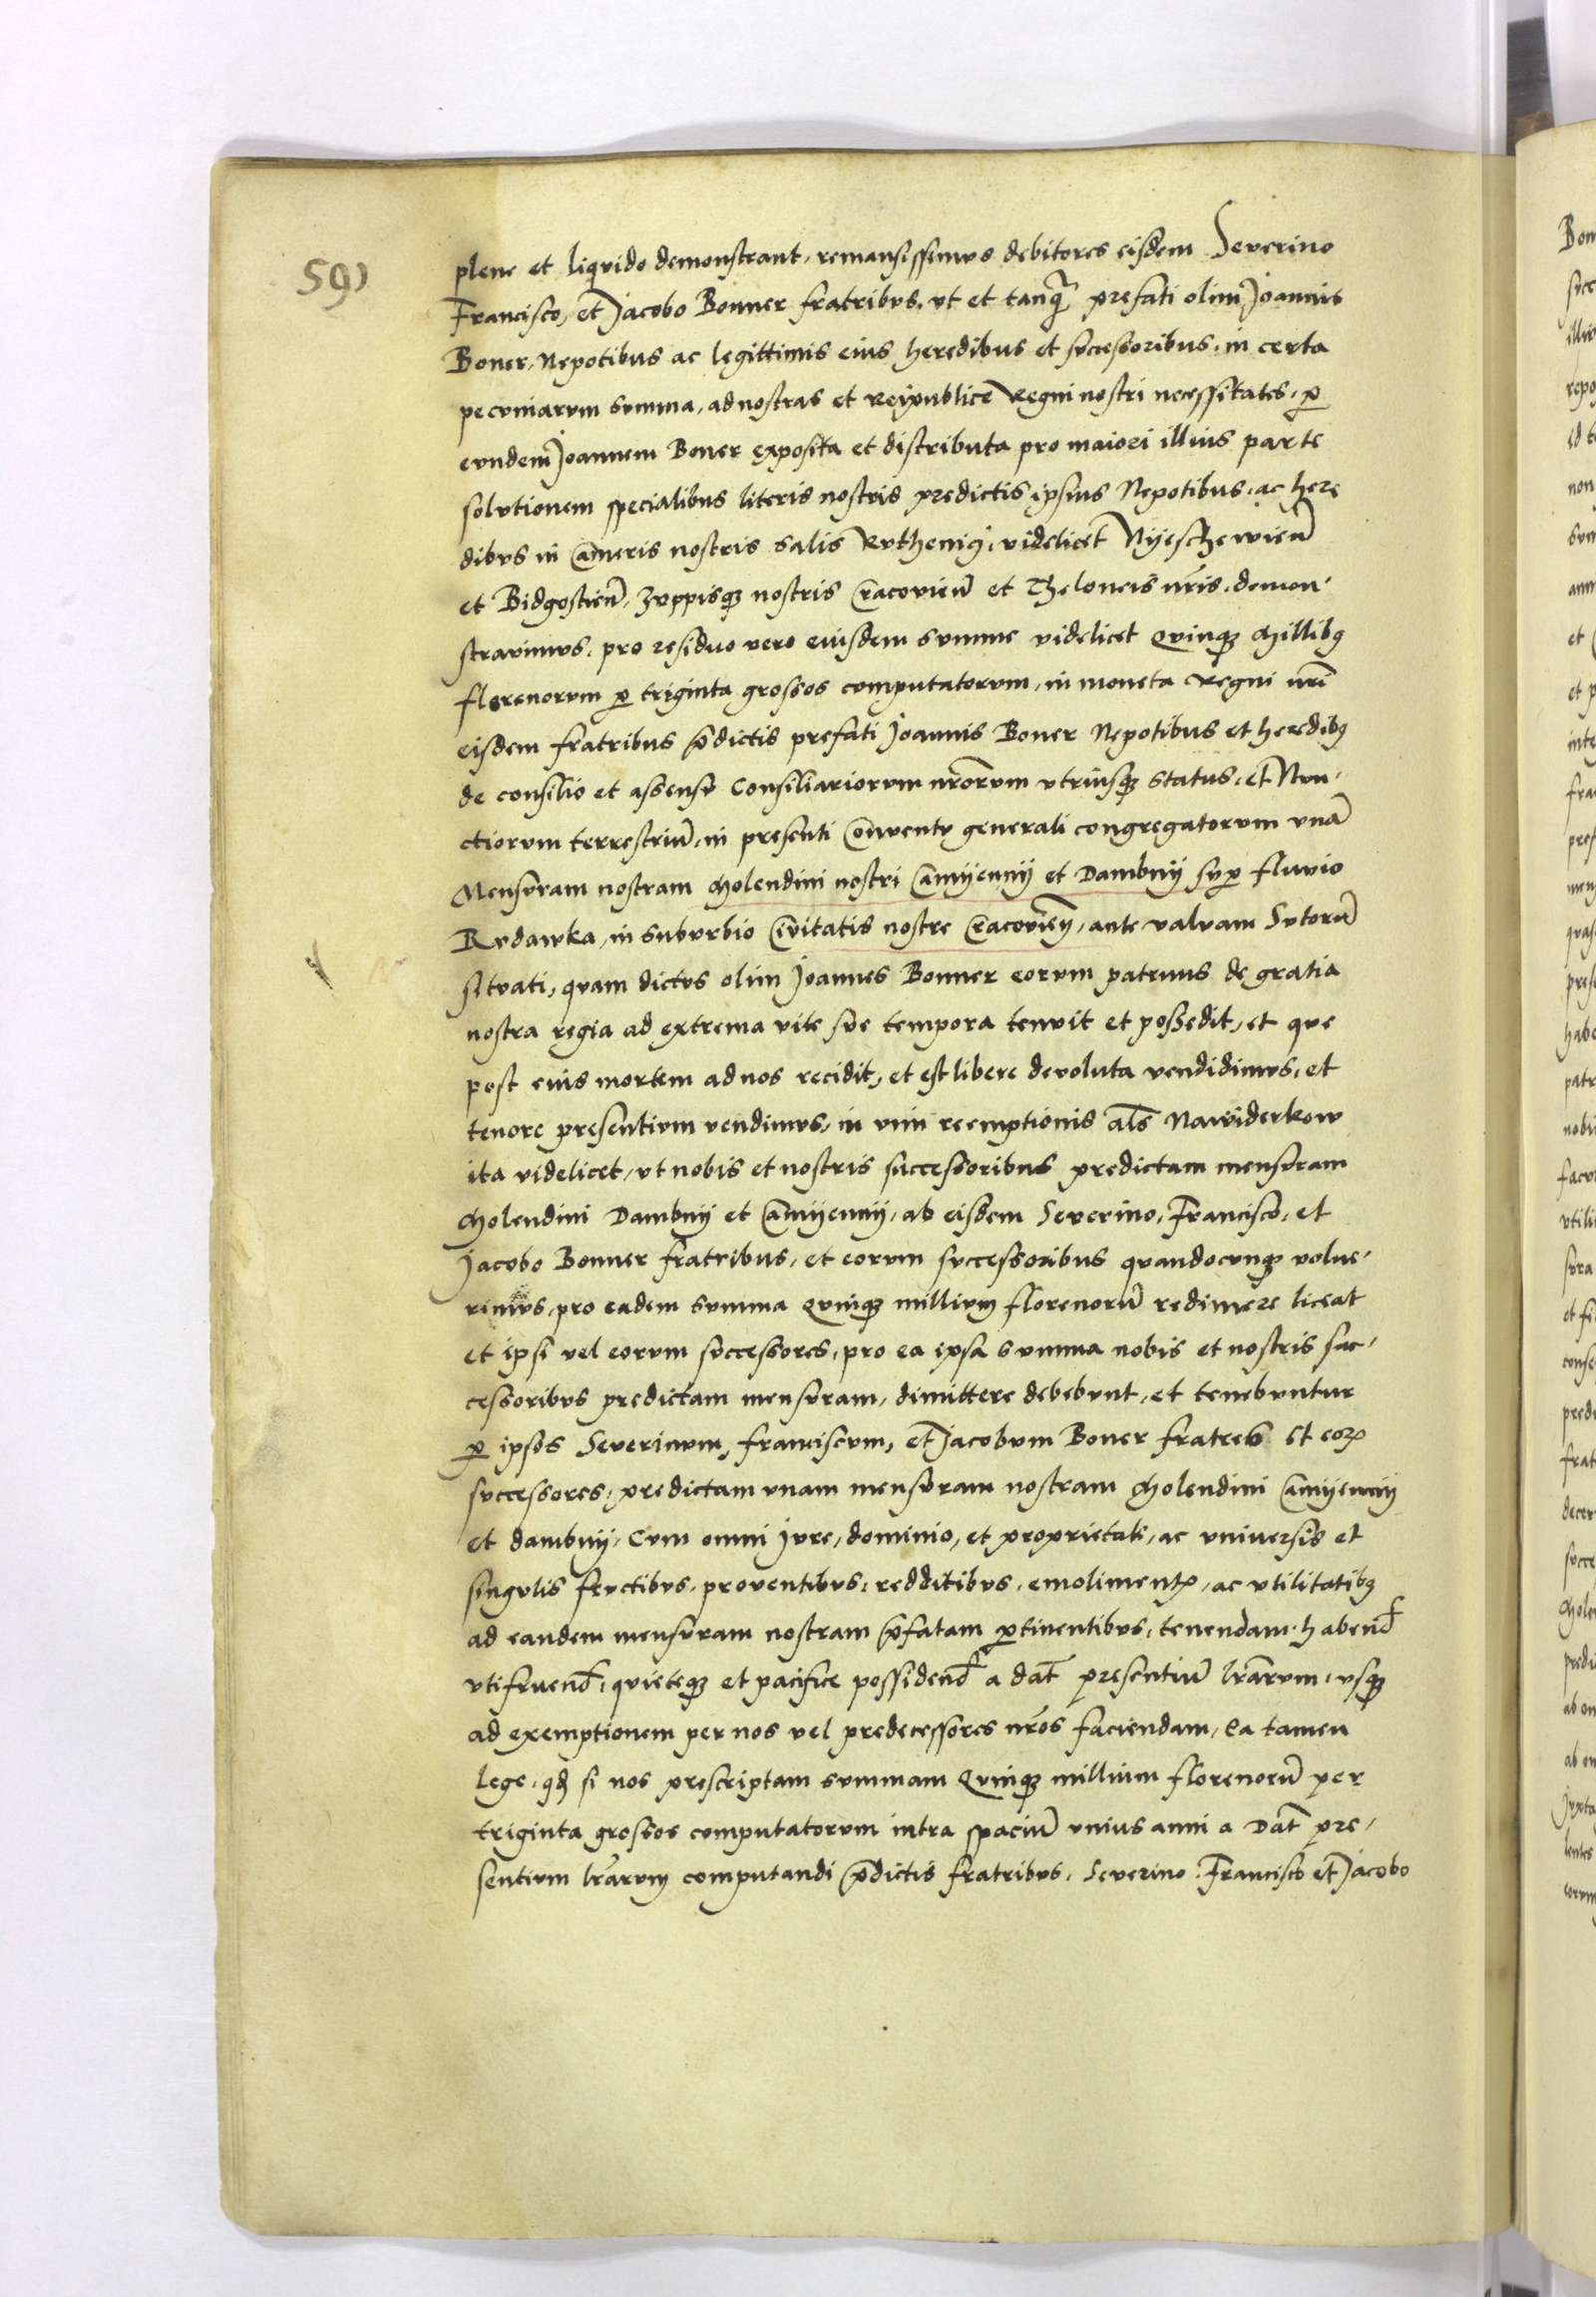 591
plene et liqvido demonstrant, remansissemvs debitores eisdem Severino
Francisco, et Jacobo Bonner fratribvs, vt et tanq̃ prefati olim Joannis
Boner, Nepotibus ac legittimis eius heredibus et svccessoribus, in certa
pecvniarvm svmma, ad nostras et reipublice Regni nostri necessitates, ꝑ
evndem Joannem Boner exposita et distributa pro maiori illius parte
solvtionem specialibus literis nostris predictis ipsius Nepotibus, ac here
dibvs in Cameris nostris salis Rvthenici, videlicet Nyeschewien̄
et Bidgostien̄, Zvppisqꝫ nostris Cracovien̄ et Theloneis nr̃is, demon-
stravimvs, pro residvo vero eiusdem svmme videlicet Qvinqꝫ Millibꝯ
florenorvm ꝑ triginta grossos computatorvm, in moneta Regni nr̃i
eisdem fratribus p̃dictis prefati Joannis Boner Nepotibus et heredibꝯ
de consilio et assensv Consiliariorvm nr̃orvm vtriusqꝫ status, et Nvn-
ctiorvm terrestriū, in presenti Conventv generali congregatorvm vnā
Mensvram nostram Molendini nostri Camyenny et Dambny svꝑ fluvio
Rvdawka, in svbvrbio Civitatis nostre Cracovien̄, ante valvam Svtorū
sitvati, qvam dictvs olim Joannes Bonner eorvm patruus de gratia
nostra regia ad extrema vite sve tempora tenvit et possedit, et qve
post eius mortem ad nos recidit, et est libere devoluta vendidimvs, et
tenore presentivm vendimvs, in vim reemptionis al̃s Nawiderkow
ita videlicet, vt nobis et nostris successoribus predictam mensvram
Molendini Dambny et Camyenny, ab eisdem Severino, Francisco, et
Jacobo Bonner fratribus, et eorvm svccessoribus qvandocvnqꝫ volue-
rimvs, pro eadem svmma Qvinqꝫ millivm florenorū redimere liceat
et ipsi vel eorvm svccessores, pro ea ipsa svmma nobis et nostris suc-
cessoribvs predictam mensvram, dimittere debebvnt, et tenebvntur
ꝑ ipsos Severinvm, Franciscvm, et Jacobvm Boner fratres et eoꝝ
svccessores, predictam vnam mensvram nostram Molendini Camyenny
et dambny, Cvm omni Jvre, dominio, et proprietate, ac vniversis et
singvlis frvctibvs, proventibvs, redditibvs, emolimentꝭ, ac vtilitatibꝯ
ad eandem mensvram nostram p̃fatam ꝑtinentibvs, tenendam, habend̃
vtifruend̃, qvieteqꝫ et pacifice possidend̃ a dat̃ presentiū lr̃arvm, vsqꝫ
ad exemptionem per nos vel predecessores nr̃os faciendam, Ea tamen
Lege, qđ si nos prescriptam svmmam Qvinqꝫ millium florenorū per
triginta grossos computatorvm intra spaciū vnius anni a Dat̃ pre-
sentivm lr̃arvm computandi p̃dictis fratribvs, Severino, Francisco et Jacobo